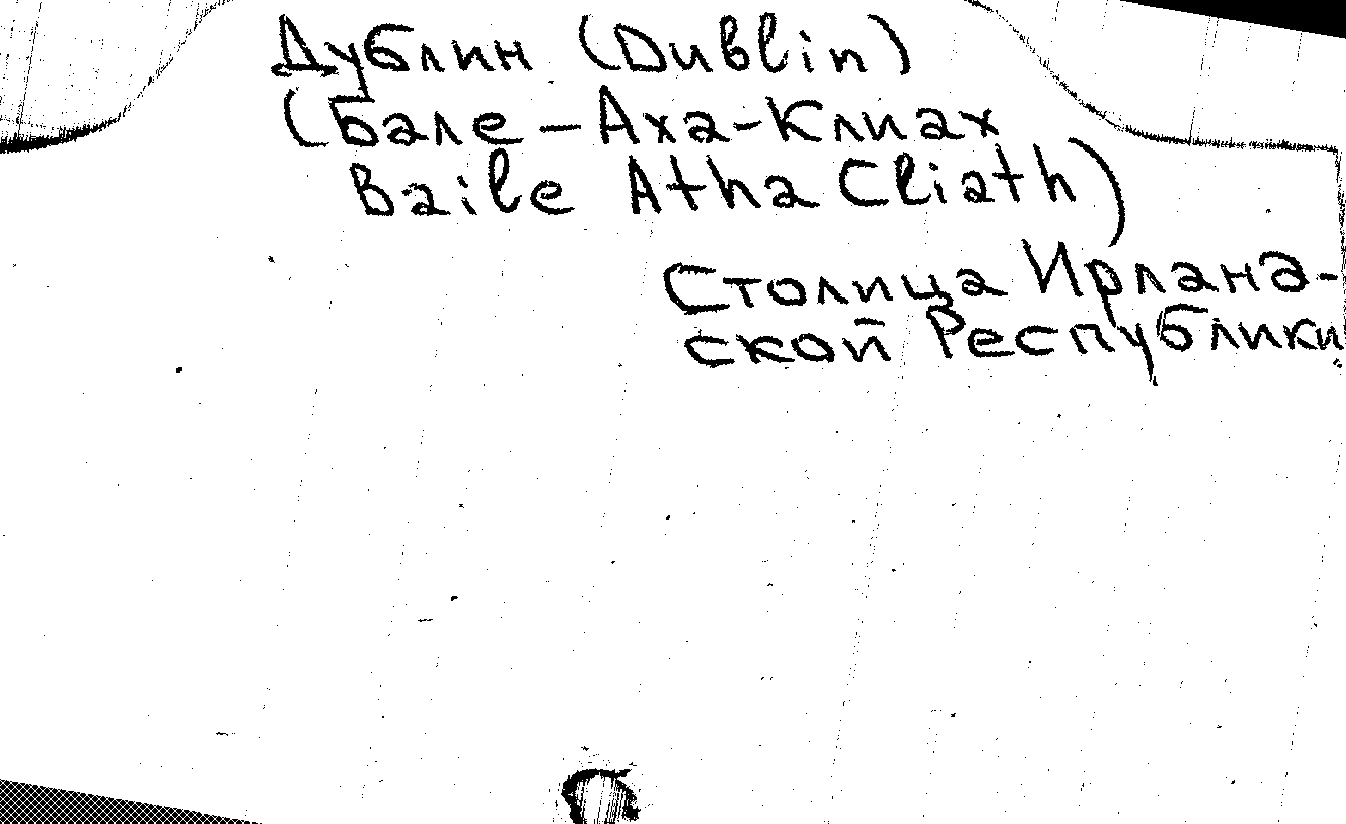 Дублин (Dublin)
(Бале-Аха-Клиах
Baile Atha Cliath)
Столица Ирланд-
ской Республики